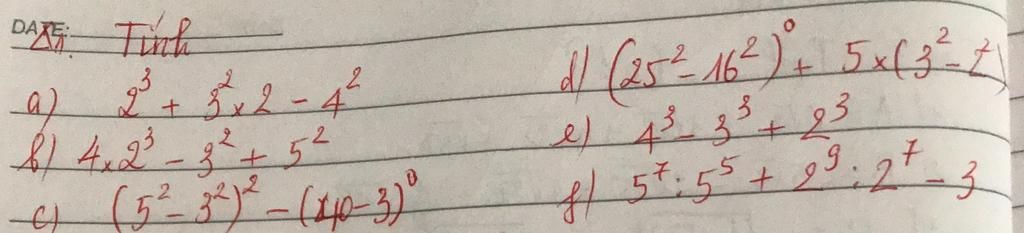 DATE:
Tính
a) 2³ + 3² × 2 - 4²
b) 4 × 2³ - 3² + 5²
c) (5² - 3²)² - (10 - 3)⁰
d) (25² - 16²)⁰ + 5 × (3² - 7)
e) 4³ - 3³ + 2³
f) 5⁷ : 5⁵ + 2⁹ : 2⁷ - 3